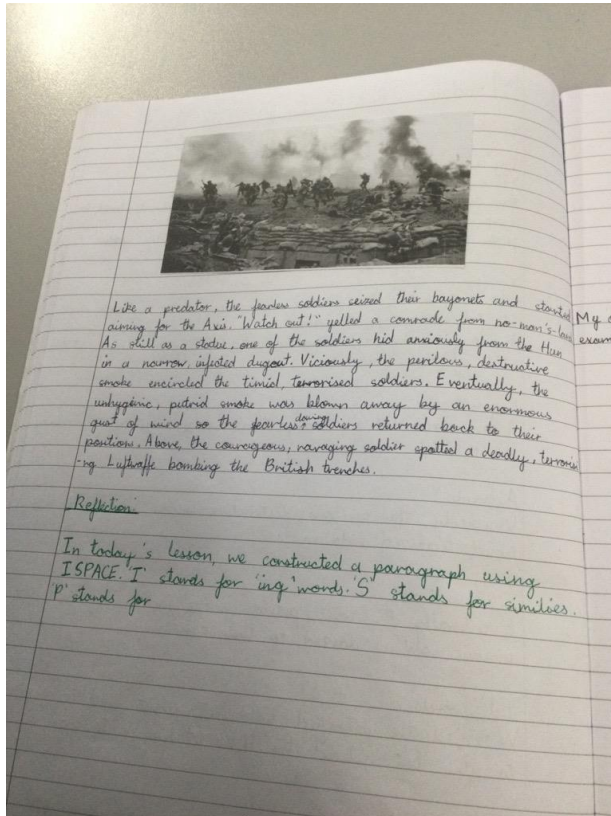 Like a predator, the fearless soldiers seized their bayonets and started
aiming for the Axis. "Watch out!" yelled a comrade from no-man's-land
As still as a statue, one of the soldiers hid anxiously from the Hun
in a narrow, infested dugout. Viciously, the perilous, destructive
smoke encircled the timid, terrorised soldiers. Eventually, the
unhygenic, putrid smoke was blown away by an enormous
gust of wind so the fearless, daring soldiers returned back to their
position. Above, the courageous, ravaging soldier spotted a deadly, terroris
-ng Luftwaffe bombing the British trenches.
Reflection
In today's lesson, we constructed a paragraph using
ISPACE. 'I' stands for 'ing' words. 'S' stands for similies.
'P' stands for
My
exam